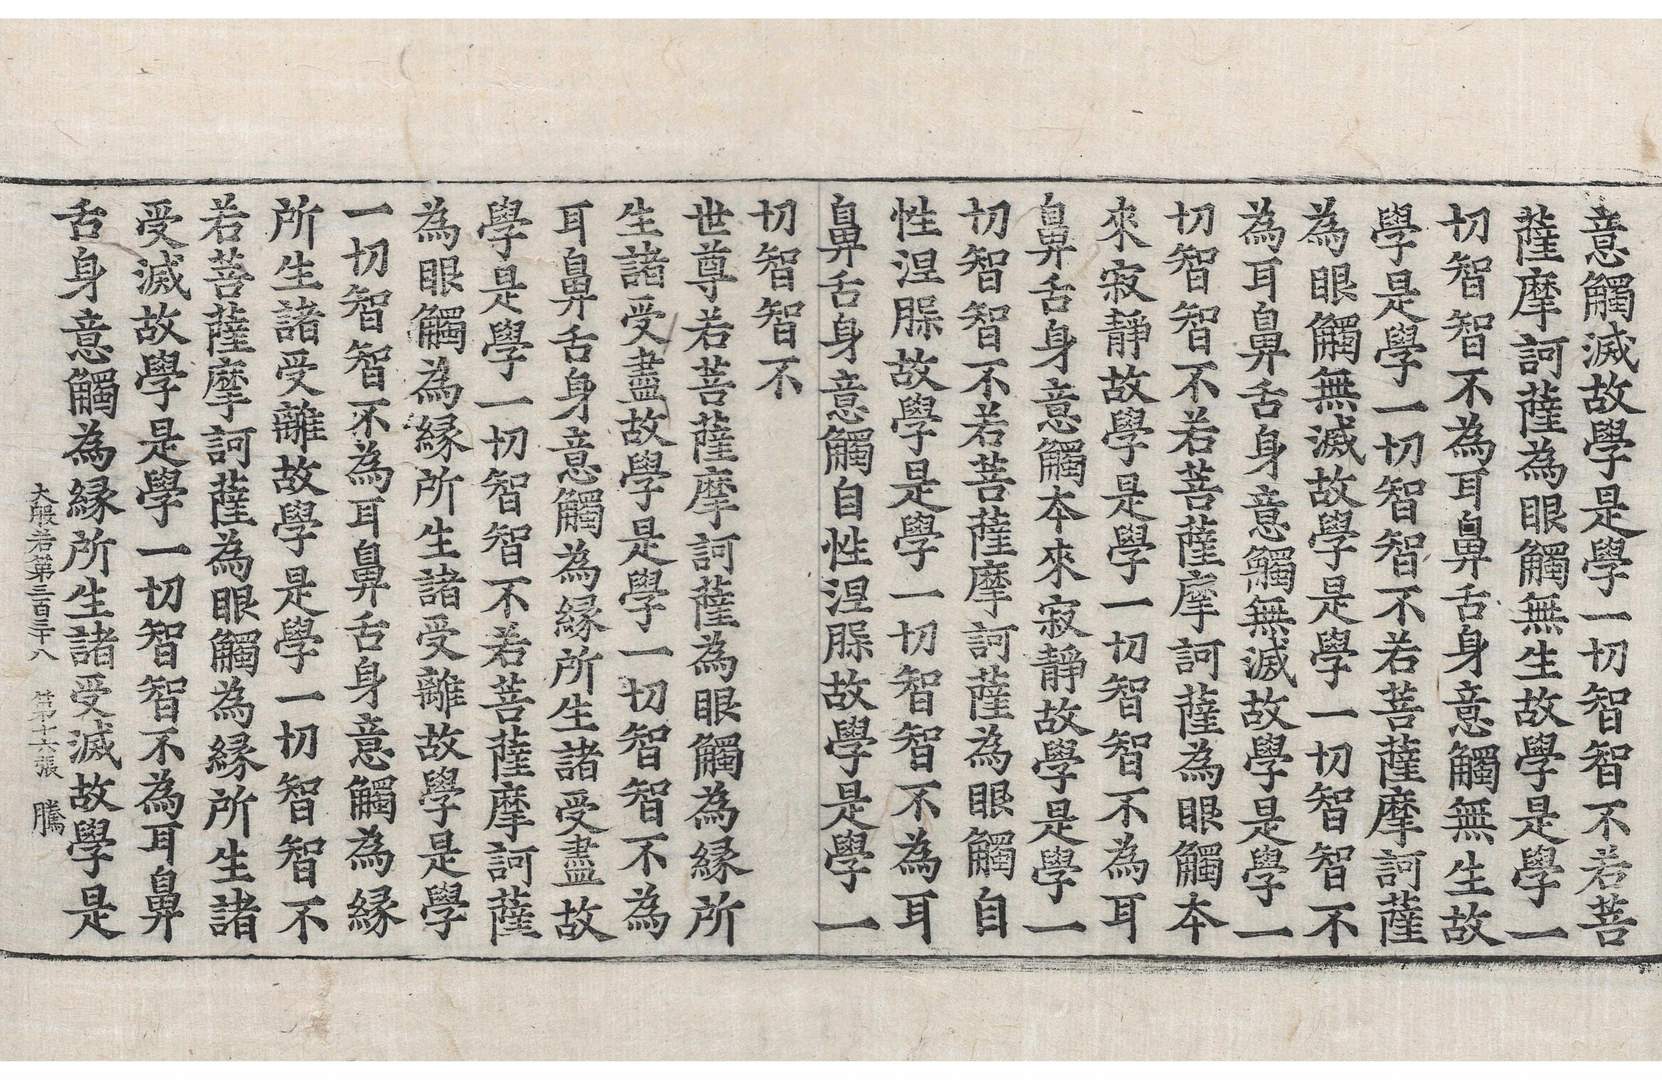 意觸滅故學是學一切智智不若菩
薩摩訶薩為眼觸無生故學是學一
切智智不為耳鼻舌身意觸無生故
學是學一切智智不若菩薩摩訶薩
為眼觸無滅故學是學一切智智不
為耳鼻舌身意觸無滅故學是學一
切智智不若菩薩摩訶薩為眼觸本
來寂靜故學是學一切智智不為耳
鼻舌身意觸本來寂靜故學是學一
切智智不若菩薩摩訶薩為眼觸自
性涅槃故學是學一切智智不為耳
鼻舌身意觸自性涅槃故學是學一
切智智不
世尊若菩薩摩訶薩為眼觸為緣所
生諸受盡故學是學一切智智不為
耳鼻舌身意觸為緣所生諸受盡故
學是學一切智智不若菩薩摩訶薩
為眼觸為緣所生諸受離故學是學
一切智智不為耳鼻舌身意觸為緣
所生諸受離故學是學一切智智不
若菩薩摩訶薩為眼觸為緣所生諸
受滅故學是學一切智智不為耳鼻
舌身意觸為緣所生諸受滅故學是
大般若第三百三十八 第十六張 騰